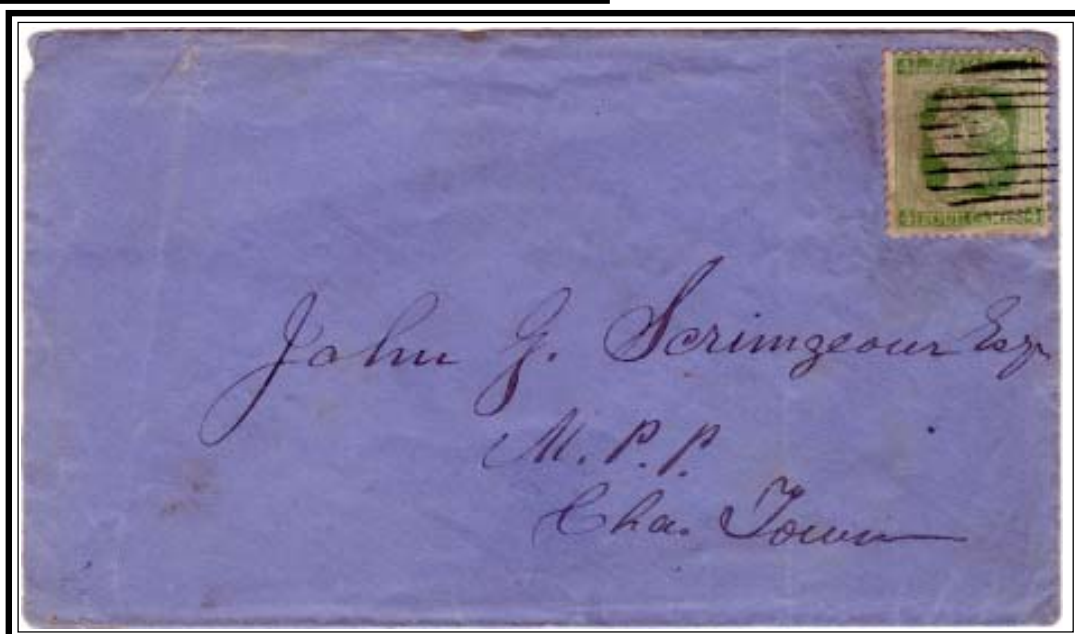 John G. Scrimgeour Esqr
M. P. P.
Cha. Town